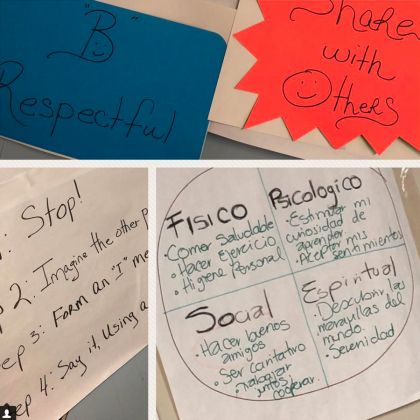 "B"
Respectful
Share
with
Others
: Stop!
p 2: Imagine the other p
ep 3: Form an "I" me
ep 4: Say it, Using a
FISICO
• Comer Saludable
• Hacer Ejercicio
• Higiene Personal
Psicologico
• Estimular mi
curiosidad de
aprender.
• Aceptar mis
sentimientos
Social
• Hacer buenos
amigos
• Ser caritativo
• Trabajar
juntos/
cooperar.
Espiritual
• Descubrir las
maravillas del
mundo.
• Serenidad.